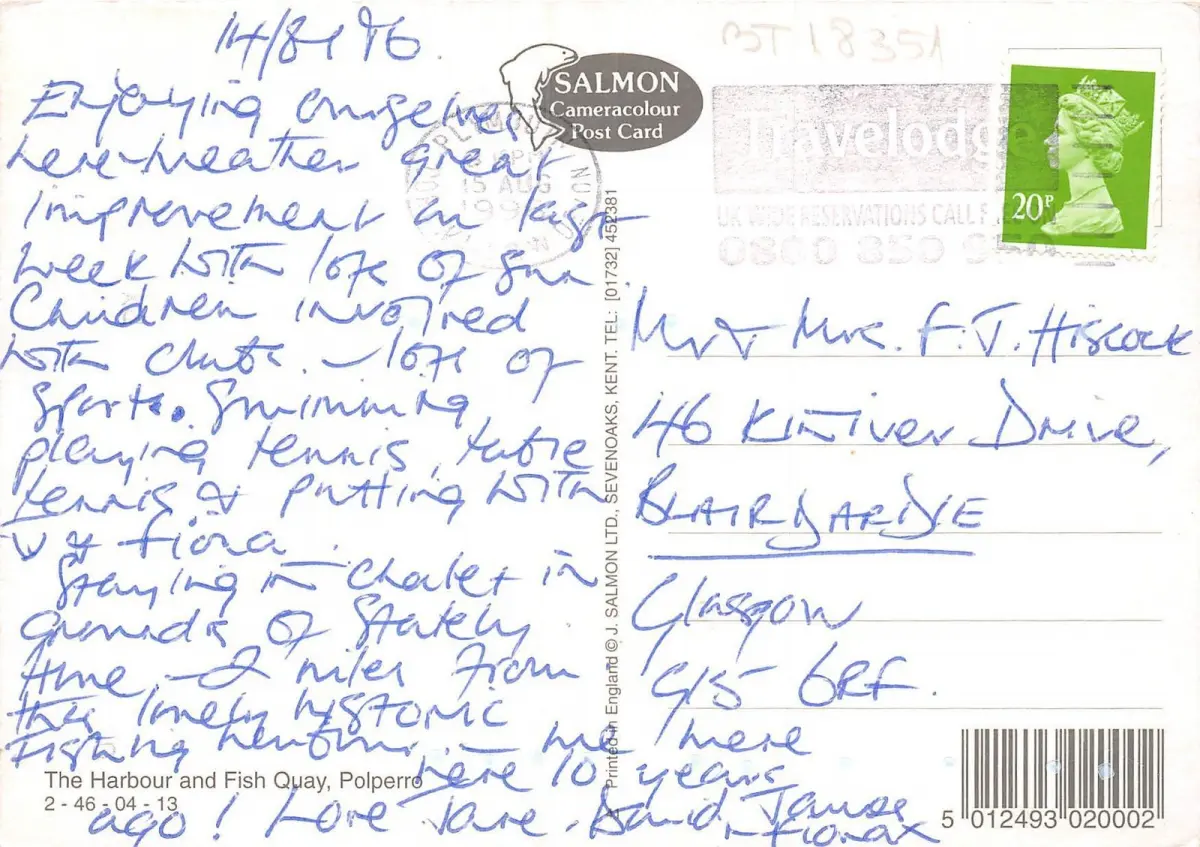 14/8/96.
Enjoying ourselves
here - weather great
improvement on last
week with lots of sun
Children involved
with clubs. - lots of
sports. Swimming,
playing tennis, table
tennis & putting with
us & Fiona.
Staying in chalet in
grounds of Stately
Home, - 2 miles from
this lovely historic
Fishing
- we were
here 10 years
ago! Love Jane, David, James
+ Fiona x
The Harbour and Fish Quay, Polperro
2 - 46 - 04 - 13
SALMON
Cameracolour
Post Card
BT 18351
15 AUG
Travelodge
UK WIDE RESERVATIONS CALL
0800 850 950
20P
Printed in England © J. SALMON LTD., SEVENOAKS, KENT. TEL: [01732] 452381
Mr & Mrs. F. J. Hiscock
46 Kintver Drive,
BLAIRDARDIE
Glasgow
G15 6RF.
5 012493 020002